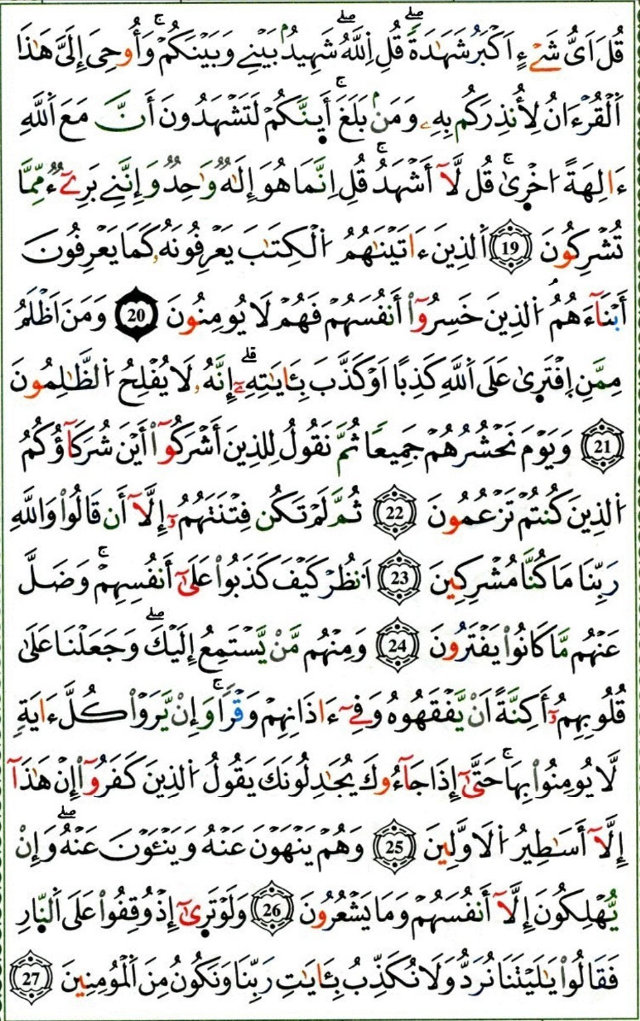 قُلَ اَيُّ شَےْءٍ اَكْبَرُ شَهَٰدَةٗۖ قُلِ اِ۬للَّهُۖ شَهِيدُۢ بَيْنِے وَبَيْنَكُمْۚ وَأُوحِيَ إِلَيَّ هَٰذَا
اَ۬لْقُرْءَانُ لِأُنذِرَكُم بِهِۦ وَمَنۢ بَلَغَۚ أَئِنَّكُمْ لَتَشْهَدُونَ أَنَّ مَعَ اَ۬للَّهِ
ءَالِهَةً اُخْر۪يٰۚ قُل لَّآ أَشْهَدُۚ قُلِ اِنَّمَا هُوَ إِلَٰهٞ وَٰحِدٞ وَإِنَّنِے بَرِےٓءٞ مِّمَّا
تُشْرِكُونَ 19 اَ۬لذِينَ ءَاتَيْنَٰهُمُ اُ۬لْكِتَٰبَ يَعْرِفُونَهُۥ كَمَا يَعْرِفُونَ
أَبْنَآءَهُمُۥ اُ۬لذِينَ خَسِرُوٓاْ أَنفُسَهُمْ فَهُمْ لَا يُومِنُونَ 20 وَمَنَ اَظْلَمُ
مِمَّنِ اِ۪فْتَر۪يٰ عَلَى اَ۬للَّهِ كَذِباً اَوْ كَذَّبَ بِـَٔايَٰتِهِۦٓۗ إِنَّهُۥ لَا يُفْلِحُ اُ۬لظَّٰلِمُونَ
21 وَيَوْمَ نَحْشُرُهُمْ جَمِيعاٗ ثُمَّ نَقُولُ لِلذِينَ أَشْرَكُوٓاْ أَيْنَ شُرَكَآؤُكُمُ
اُ۬لذِينَ كُنتُمْ تَزْعُمُونَ 22 ثُمَّ لَمْ تَكُن فِتْنَتَهُمُۥٓ إِلَّآ أَن قَالُواْ وَاللَّهِ
رَبِّنَا مَا كُنَّا مُشْرِكِينَ 23 اَ۟نظُرْ كَيْفَ كَذَبُواْ عَلَيٰٓ أَنفُسِهِمْۚ وَضَلَّ
عَنْهُم مَّا كَانُواْ يَفْتَرُونَ 24 وَمِنْهُم مَّنْ يَّسْتَمِعُ إِلَيْكَۖ وَجَعَلْنَا عَلَيٰ
قُلُوبِهِمُۥٓ أَكِنَّةً اَنْ يَّفْقَهُوهُ وَفِےٓ ءَاذَانِهِمْ وَقْراٗۚ وَإِنْ يَّرَوْاْ كُلَّ ءَايَةٖ
لَّا يُومِنُواْ بِهَاۚ حَتَّيٰٓ إِذَا جَآءُوكَ يُجَٰدِلُونَكَ يَقُولُ اُ۬لذِينَ كَفَرُوٓاْ إِنْ هَٰذَآ
إِلَّآ أَسَٰطِيرُ اُ۬لَاوَّلِينَ 25 وَهُمْ يَنْهَوْنَ عَنْهُ وَيَنْـَٔوْنَ عَنْهُۖ وَإِنْ
يُّهْلِكُونَ إِلَّآ أَنفُسَهُمْ وَمَا يَشْعُرُونَ 26 وَلَوْ تَر۪يٰٓ إِذْ وُقِفُواْ عَلَى اَ۬لنّ۪ارِ
فَقَالُواْ يَٰلَيْتَنَا نُرَدُّ وَلَا نُكَذِّبُ بِـَٔايَٰتِ رَبِّنَا وَنَكُونُ مِنَ اَ۬لْمُومِنِينَ 27